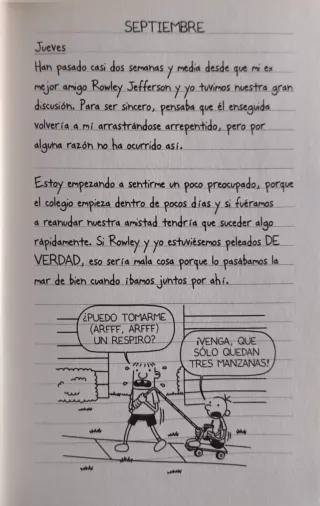 SEPTIEMBRE
Jueves
Han pasado casi dos semanas y media desde que mi ex
mejor amigo Rowley Jefferson y yo tuvimos nuestra gran
discusión. Para ser sincero, pensaba que él enseguida
volvería a mí arrastrándose arrepentido, pero por
alguna razón no ha ocurrido así.
Estoy empezando a sentirme un poco preocupado, porque
el colegio empieza dentro de pocos días y si fuéramos
a reanudar nuestra amistad tendría que suceder algo
rápidamente. Si Rowley y yo estuviésemos peleados DE
VERDAD, eso sería mala cosa porque lo pasábamos la
mar de bien cuando íbamos juntos por ahí.
¿PUEDO TOMARME
(ARFF, ARFFF)
UN RESPIRO?
¡VENGA, QUE
SÓLO QUEDAN
TRES MANZANAS!